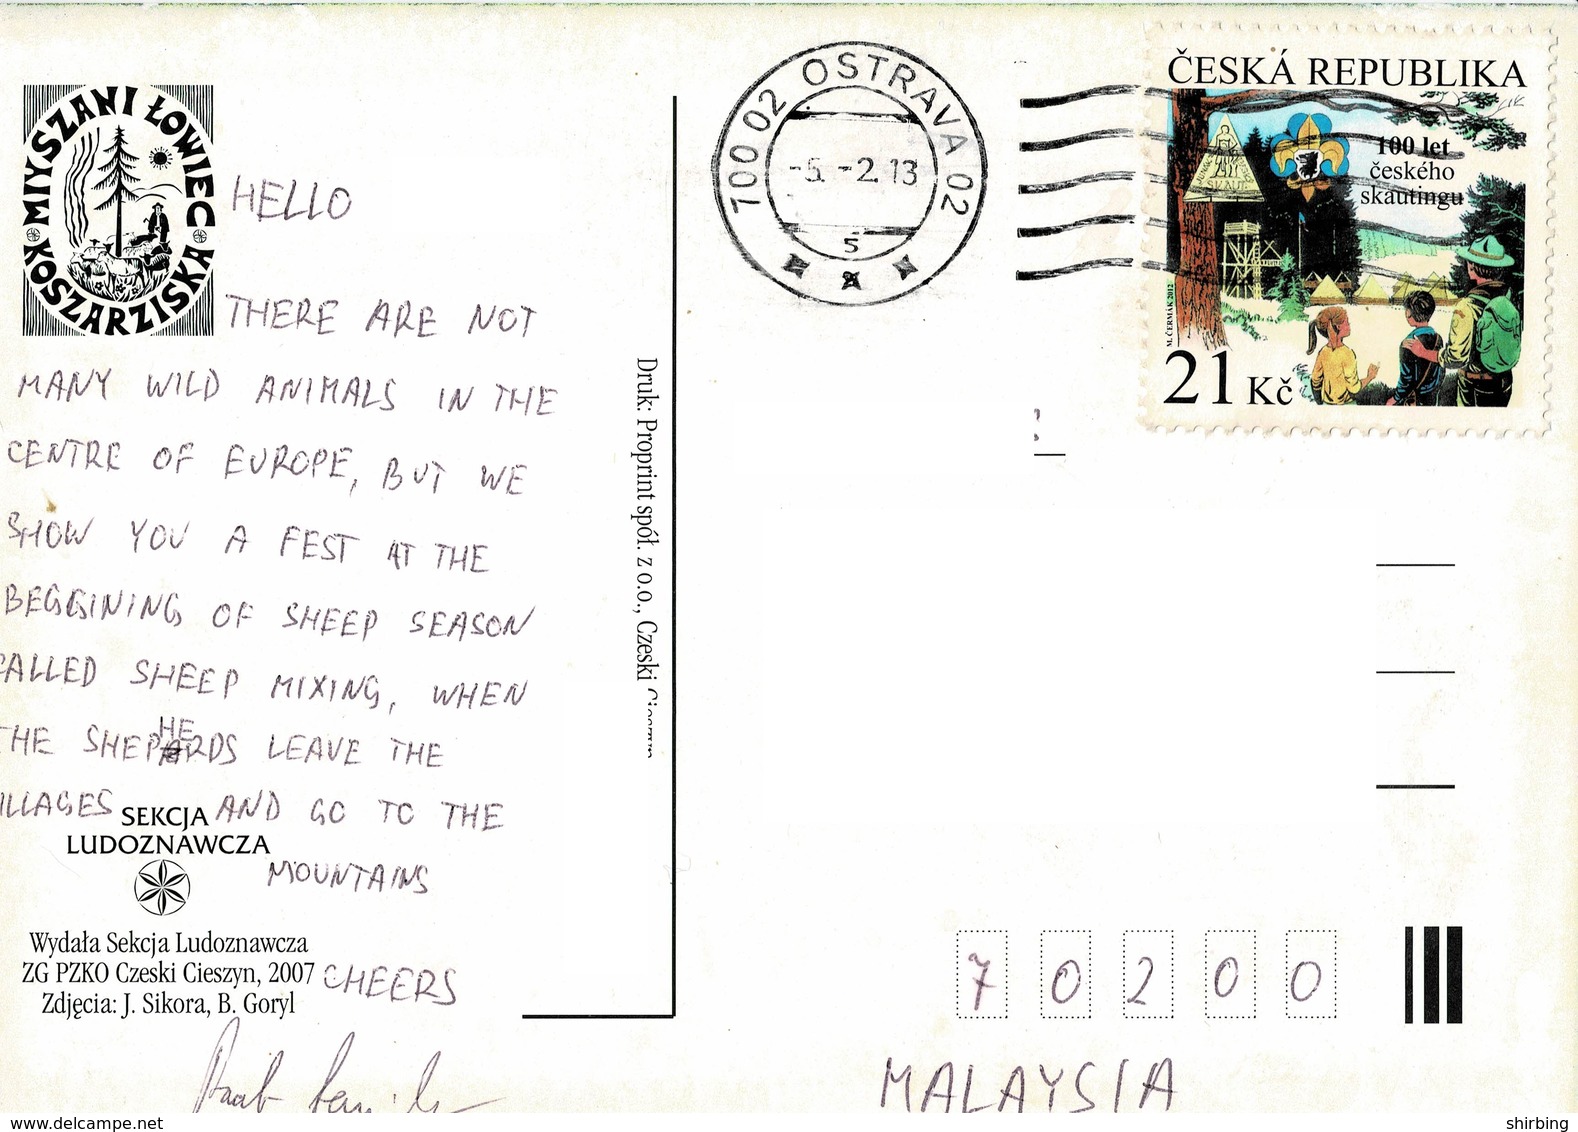 MIYSZANI ŁOWIEC
KOSZARZISKA
HELLO
THERE ARE NOT
MANY WILD ANIMALS IN THE
CENTRE OF EUROPE, BUT WE
SHOW YOU A FEST AT THE
BEGGINING OF SHEEP SEASON
CALLED SHEEP MIXING, WHEN
THE SHEPHERDS LEAVE THE
ILLAGES AND GO TO THE
MOUNTAINS
CHEERS
SEKCJA
LUDOZNAWCZA
Wydała Sekcja Ludoznawcza
ZG PZKO Czeski Cieszyn, 2007
Zdjęcia: J. Sikora, B. Goryl
Druk: Proprint spół. z o.o., Czeski Cieszyn
700 02 OSTRAVA 02
-5.-2.13
s
ČESKÁ REPUBLIKA
100 let
českého
skautingu
SKAUT
M. ČERMÁK 2012
21 Kč
70200
MALAYSIA
www.delcampe.net
shirbing